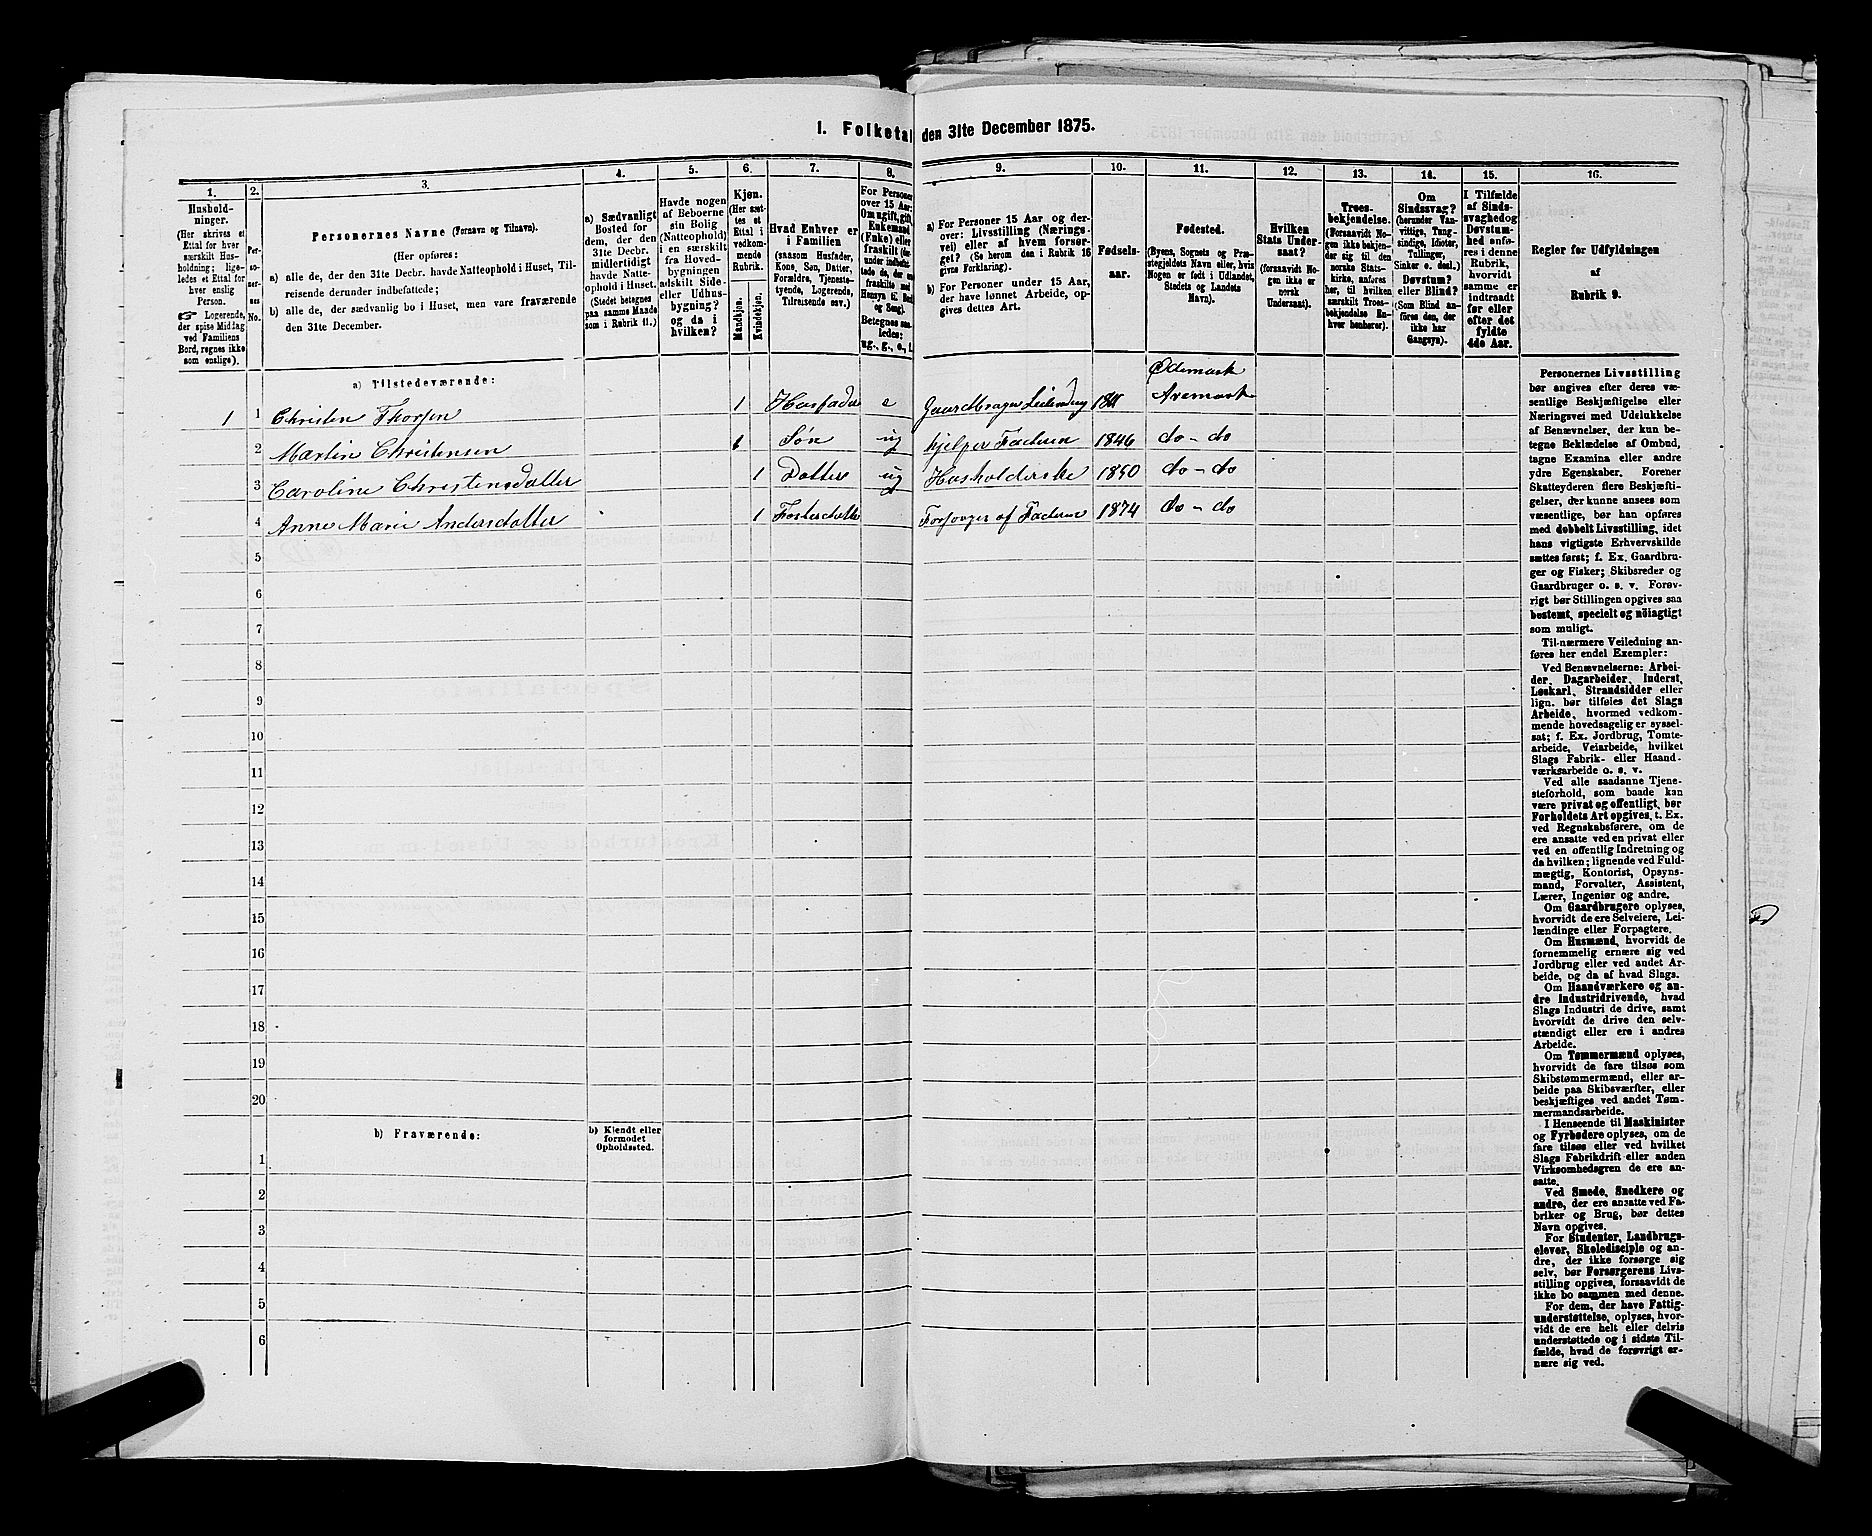 1. Folketal den 31te December 1875.
1.
Hushold-
ninger.
(Her skrives et
Ettal for hver
særskilt Hus-
holdning; lige-
ledes et Ettal for
hver enslig
Person.
☞ Logerende,
der spise Middag
ved Familiens
Bord, regnes ikke
som enslige).
2.
Per-
so-
ner-
nes
No.
3.
Personernes Navne (Fornavn og Tilnavn).
(Her opføres:
a) alle de, der den 31te Decbr. havde Natteophold i Huset, Til-
reisende derunder indbefattede;
b) alle de, der sædvanlig bo i Huset, men vare fraværende
den 31te December.
4.
a) Sædvanligt
Bosted for
dem, der den
31te Decbr.
midlertidigt
havde Natte-
ophold i Huset.
(Stedet betegnes
paa samme Maade
som i Rubrik 11.)
5.
Havde nogen
af Beboerne
sin Bolig
(Natteophold)
i en særskilt
fra Hoved-
bygningen
adskilt Side-
eller Udhus-
bygning?
og da i
hvilken?
6.
Kjøn.
(Her sæt-
tes et
Ettal i
vedkom-
mende
Rubrik.
Mandkjøn.
Kvindekjøn.
7.
Hvad Enhver er
i Familien
(saasom Husfader,
Kone, Søn, Datter,
Forældre, Tjeneste-
tyende, Logerende,
Tilreisende osv.)
8.
For Personer
over 15 Aar:
Om ugift, gift,
Enkemand
(Enke) eller
fraskilt
Betegnes saa-
ledes:
ug., g., e., f.
9.
a) For Personer 15 Aar og der-
over: Livsstilling (Nærings-
vei) eller af hvem forsør-
get? (Se herom den i Rubrik 16
givne Forklaring).
b) For Personer under 15 Aar,
der have lønnet Arbeide, op-
gives dettes Art.
10.
Fødsels-
aar.
11.
Fødested.
(Byens, Sognets og Præ-
stegjeldets Navn eller, hvis
Nogen er født i Udlandet,
Stedets og Landets
Navn).
12.
Hvilken
Stats Under-
saat?
(forsaavidt No-
gen ikke er
norsk
Undersaat).
13.
Troes-
bekjendelse.
(Forsaavidt No-
gen ikke bekjen-
der sig til den
norske Stats-
kirke, anføres
her, til hvilken
særskilt Troes-
bekjendelse En-
hver henhører).
14.
Om
Sindssvag?
(herunder Van-
vittige, Tung-
sindige, Idioter,
Tullinger,
Sinker o. desl.)
Døvstum?
eller Blind?
(Som Blind an-
føres den, der
ikke har
Gangsyn).
15.
I Tilfælde
af Sinds-
svaghed og
Døvstum-
hed anfø-
res i denne
Rubrik,
hvorvidt
samme er
indtraadt
før eller
efter det
fyldte
4de Aar.
16.
Regler før Udfyldningen
af
Rubrik 9.
a) Tilstedeværende:
Ødemark
1 1 Christen Thorsen 1 Husfader e Gaardbruger Leilending 1811 Aremark
2 Martin Christensen 1 Søn ug hjelper Faderen 1846 do - do
3 Caroline Christensdatter 1 Datter ug Husholderske 1850 do - do
4 Anne Marie Andersdatter 1 Fosterdatter Forsørges af Faderen 1874 do - do
5
6
7
8
9
10
11
12
13
14
15
16
17
18
19
20
b) Fraværende:
b) Kjendt eller
formodet
Opholdssted.
1
2
3
4
5
6
Personernes Livsstilling
bør angives efter deres væ-
sentlige Beskjæftigelse eller
Næringsvei med Udelukkelse
af Benævnelser, der kun be-
tegne Beklædelse af Ombud,
tagne Examina eller andre
ydre Egenskaber. Forener
Skatteyderen flere Beskjæfti-
gelser, der kunne ansees som
væsentlige, bør han opføres
med dobbelt Livsstilling, idet
hans vigtigste Erhvervskilde
sættes først; f. Ex. Gaardbru-
ger og Fisker; Skibsreder og
Gaardbruger o. s. v. Forøv-
rigt bør Stillingen opgives saa
bestemt, specielt og nöiagtigt
som muligt.
Til nærmere Veiledning an-
føres her endel Exempler:
Ved Benævnelserne: Arbei-
der, Dagarbeider, Inderst,
Løskarl, Strandsidder eller
lign. bør tilføies det Slags
Arbeide, hvormed vedkom-
mende hovedsagelig er syssel-
sat; f. Ex. Jordbrug, Tomte-
arbeide, Veiarbeide, hvilket
Slags Fabrik- eller Haand-
værksarbeide o. s. v.
Ved alle saadanne Tjene-
steforhold, som baade kan
være privat og offentligt, bør
Forholdets Art opgives, t. Ex.
ved Regnskabsførere, om de
ere ansatte ved en privat eller
ved en offentlig Indretning og
da hvilken; lignende ved Fuld-
mægtig, Kontorist, Opsyns-
mand, Forvalter, Assistent,
Lærer, Ingeniør og andre.
Om Gaardbrugere oplyses,
hvorvidt de ere Selveiere, Lei-
lændinge eller Forpagtere.
Om Husmænd, hvorvidt de
fornemmelig ernære sig ved
Jordbrug eller ved andet Ar-
beide, og da af hvad Slags.
Om Haandværkere og an-
dre Industridrivende, hvad
Slags Industri de drive, samt
hvorvidt de drive den selv-
stændigt eller ere i andres
Arbeide.
Om Tømmermænd oplyses,
hvorvidt de fare tilsøs som
Skibstømmermænd, eller ar-
beide paa Skibsværfter, eller
beskjæftiges ved andet Tøm-
mermandsarbeide.
I Henseende til Maskinister
og Fyrbødere oplyses, om de
fare tilsøs eller ved hvilket
Slags Fabrikdrift eller anden
Virksomhedsgren de ere an-
satte.
Ved Smede, Snedkere og
andre, der ere ansatte ved Fa-
briker og Brug, bør dettes
Navn opgives.
For Studenter, Landbrugs-
elever, Skoledisciple og an-
dre, der ikke forsørge sig
selv, bør Forsørgerens Livs-
stilling opgives, forsaavidt de
ikke bo sammen med denne.
For dem, der have Fattig-
understøttelse, oplyses, hvor-
vidt de ere helt eller delvis
understøttede og i sidste Til-
fælde, hvad de forøvrigt er-
nære sig ved.